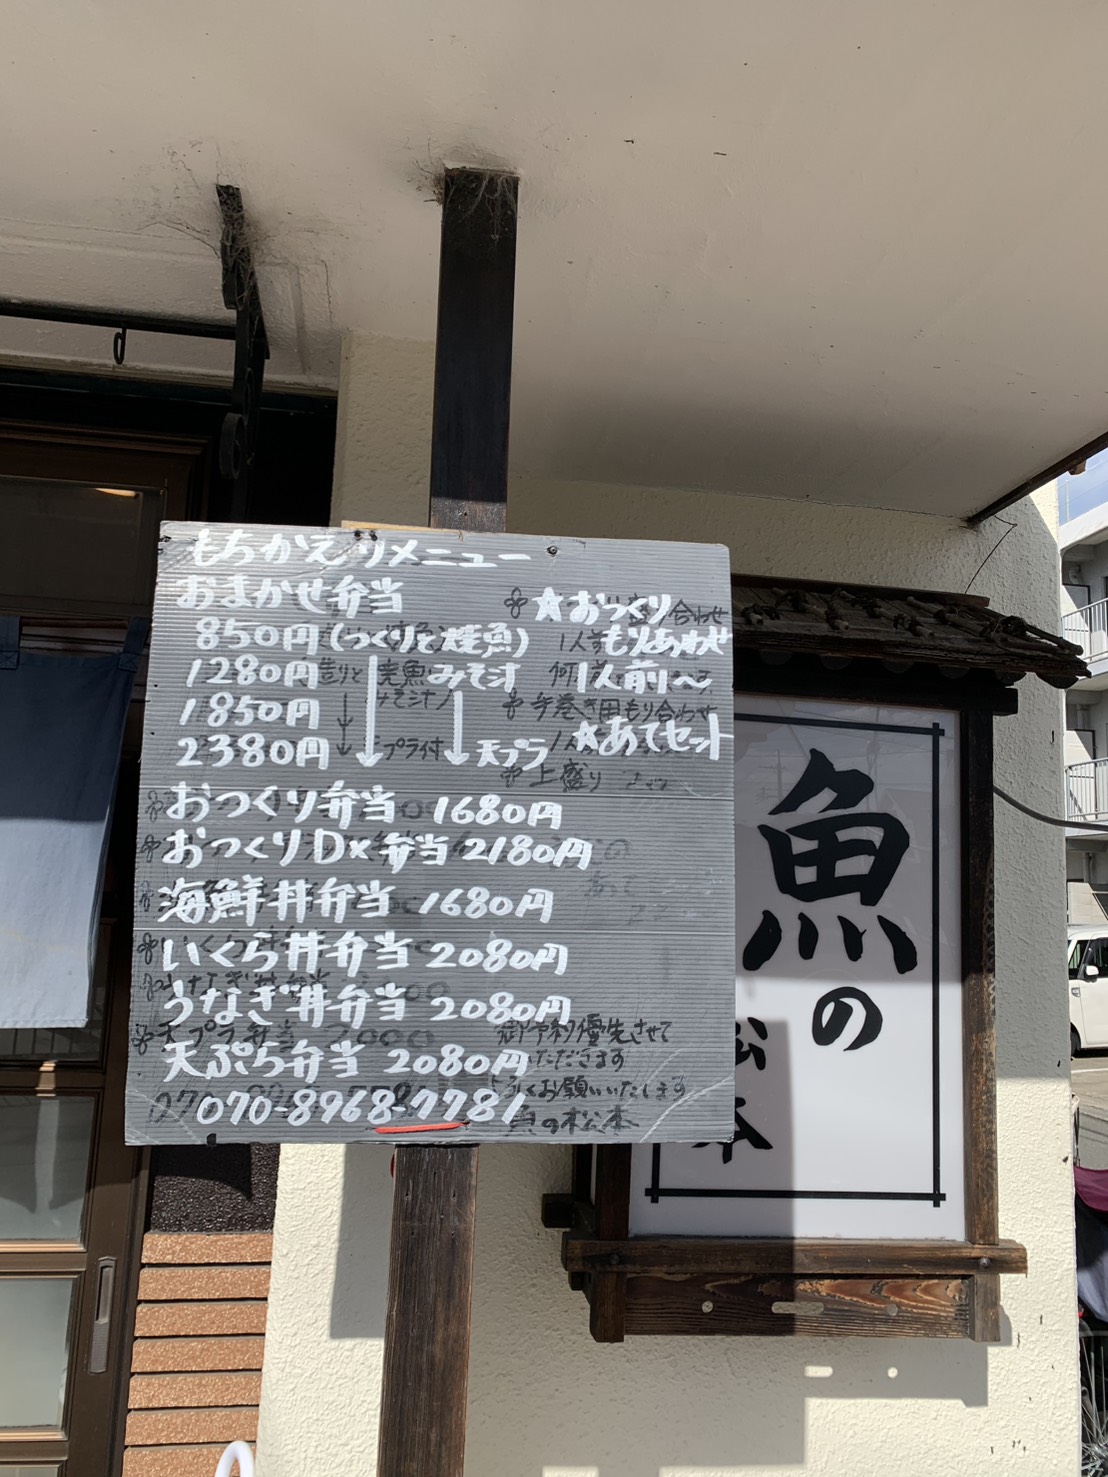 もちかえりメニュー
おまかせ弁当
850円(つくりと焼魚)
1280円 みそ汁
1850円
2380円 天プラ
★おつくり
もりあわせ
1人前〜
★あてセット
おつくり弁当 1680円
おつくりDX弁当 2180円
海鮮丼弁当 1680円
いくら丼弁当 2080円
うなぎ丼弁当 2080円
天ぷら弁当 2080円
070-8968-7781
御予約優先させて
いただきます
よろしくお願いいたします
魚の松本
魚の
松本